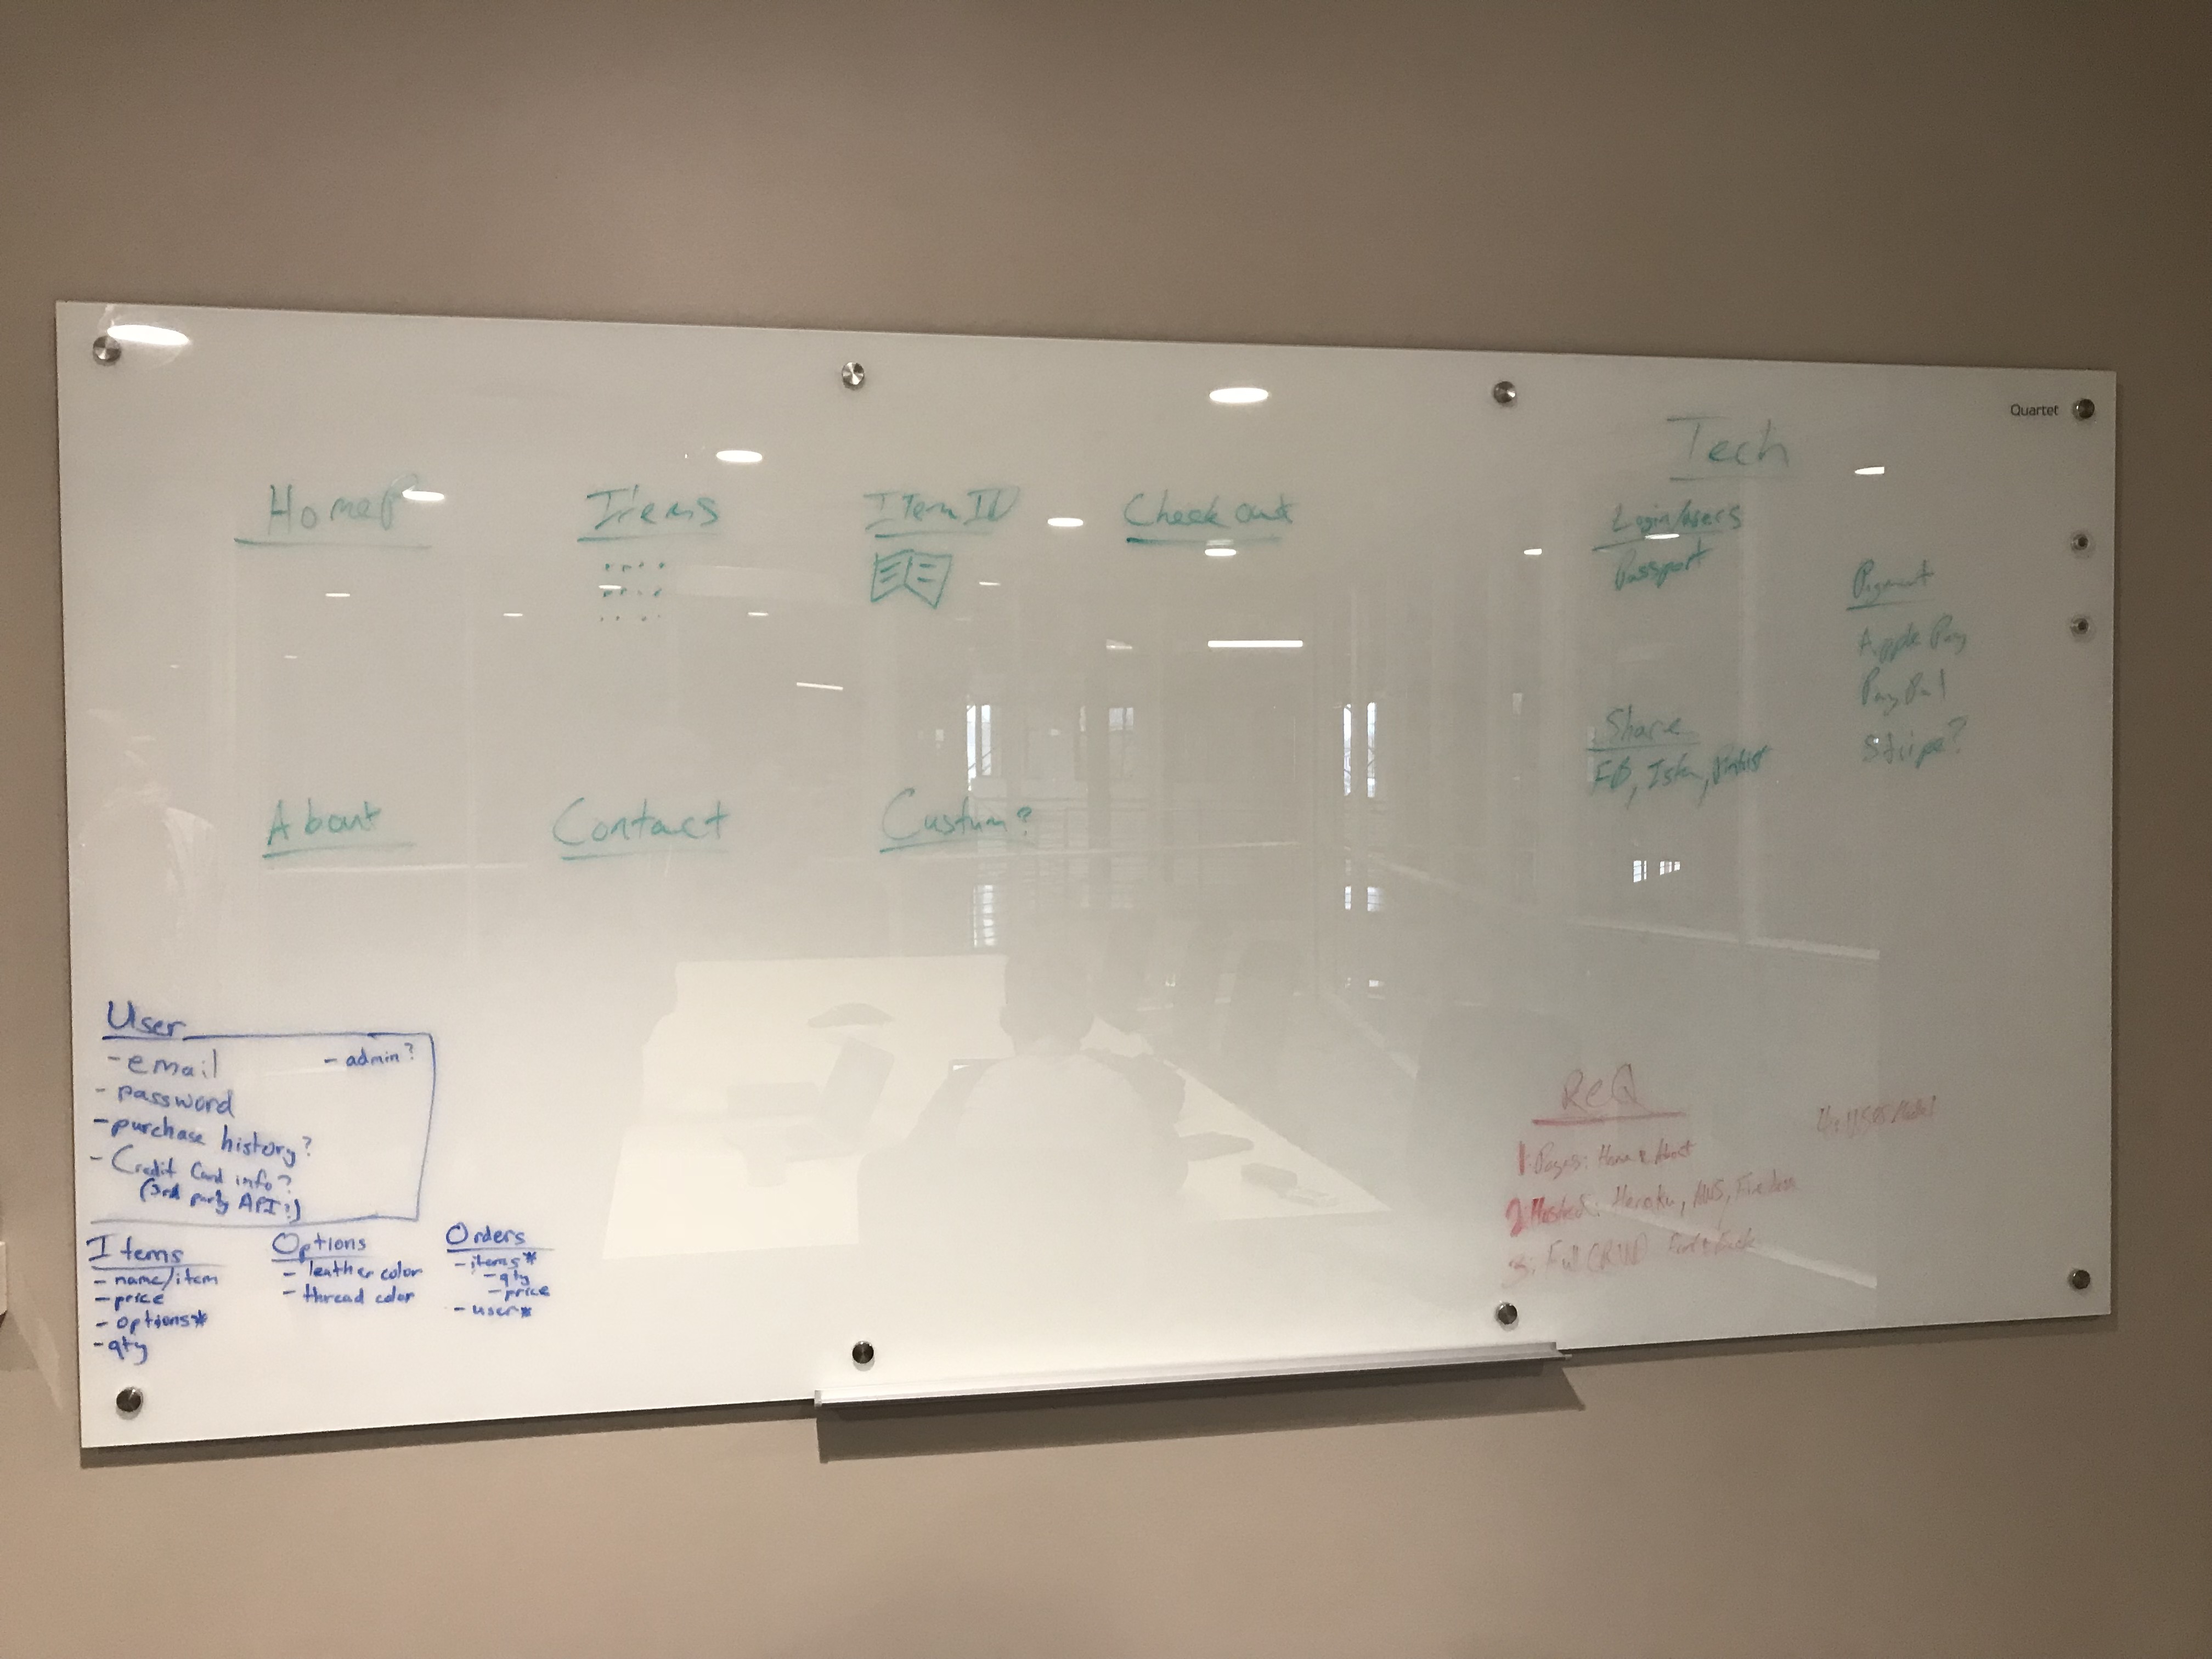 Quartet
Tech
HomeP
Items
Item ID
Check out
Login/users
Passport
Payment
Apple Pay
PayPal
Stripe?
Share
FB, Insta,
About
Contact
Custum?
User
- email
- admin?
- password
- purchase history?
- Credit Card info?
(3rd party API?)
Items
- name/item
- price
- options*
- qty
Options
- leather color
- thread color
Orders
- items*
- qty
- price
- user*
ReQ
1. Pages: Home & About
2. Hosted: Heroku, AWS,
3. Full CRUD
4. User Model